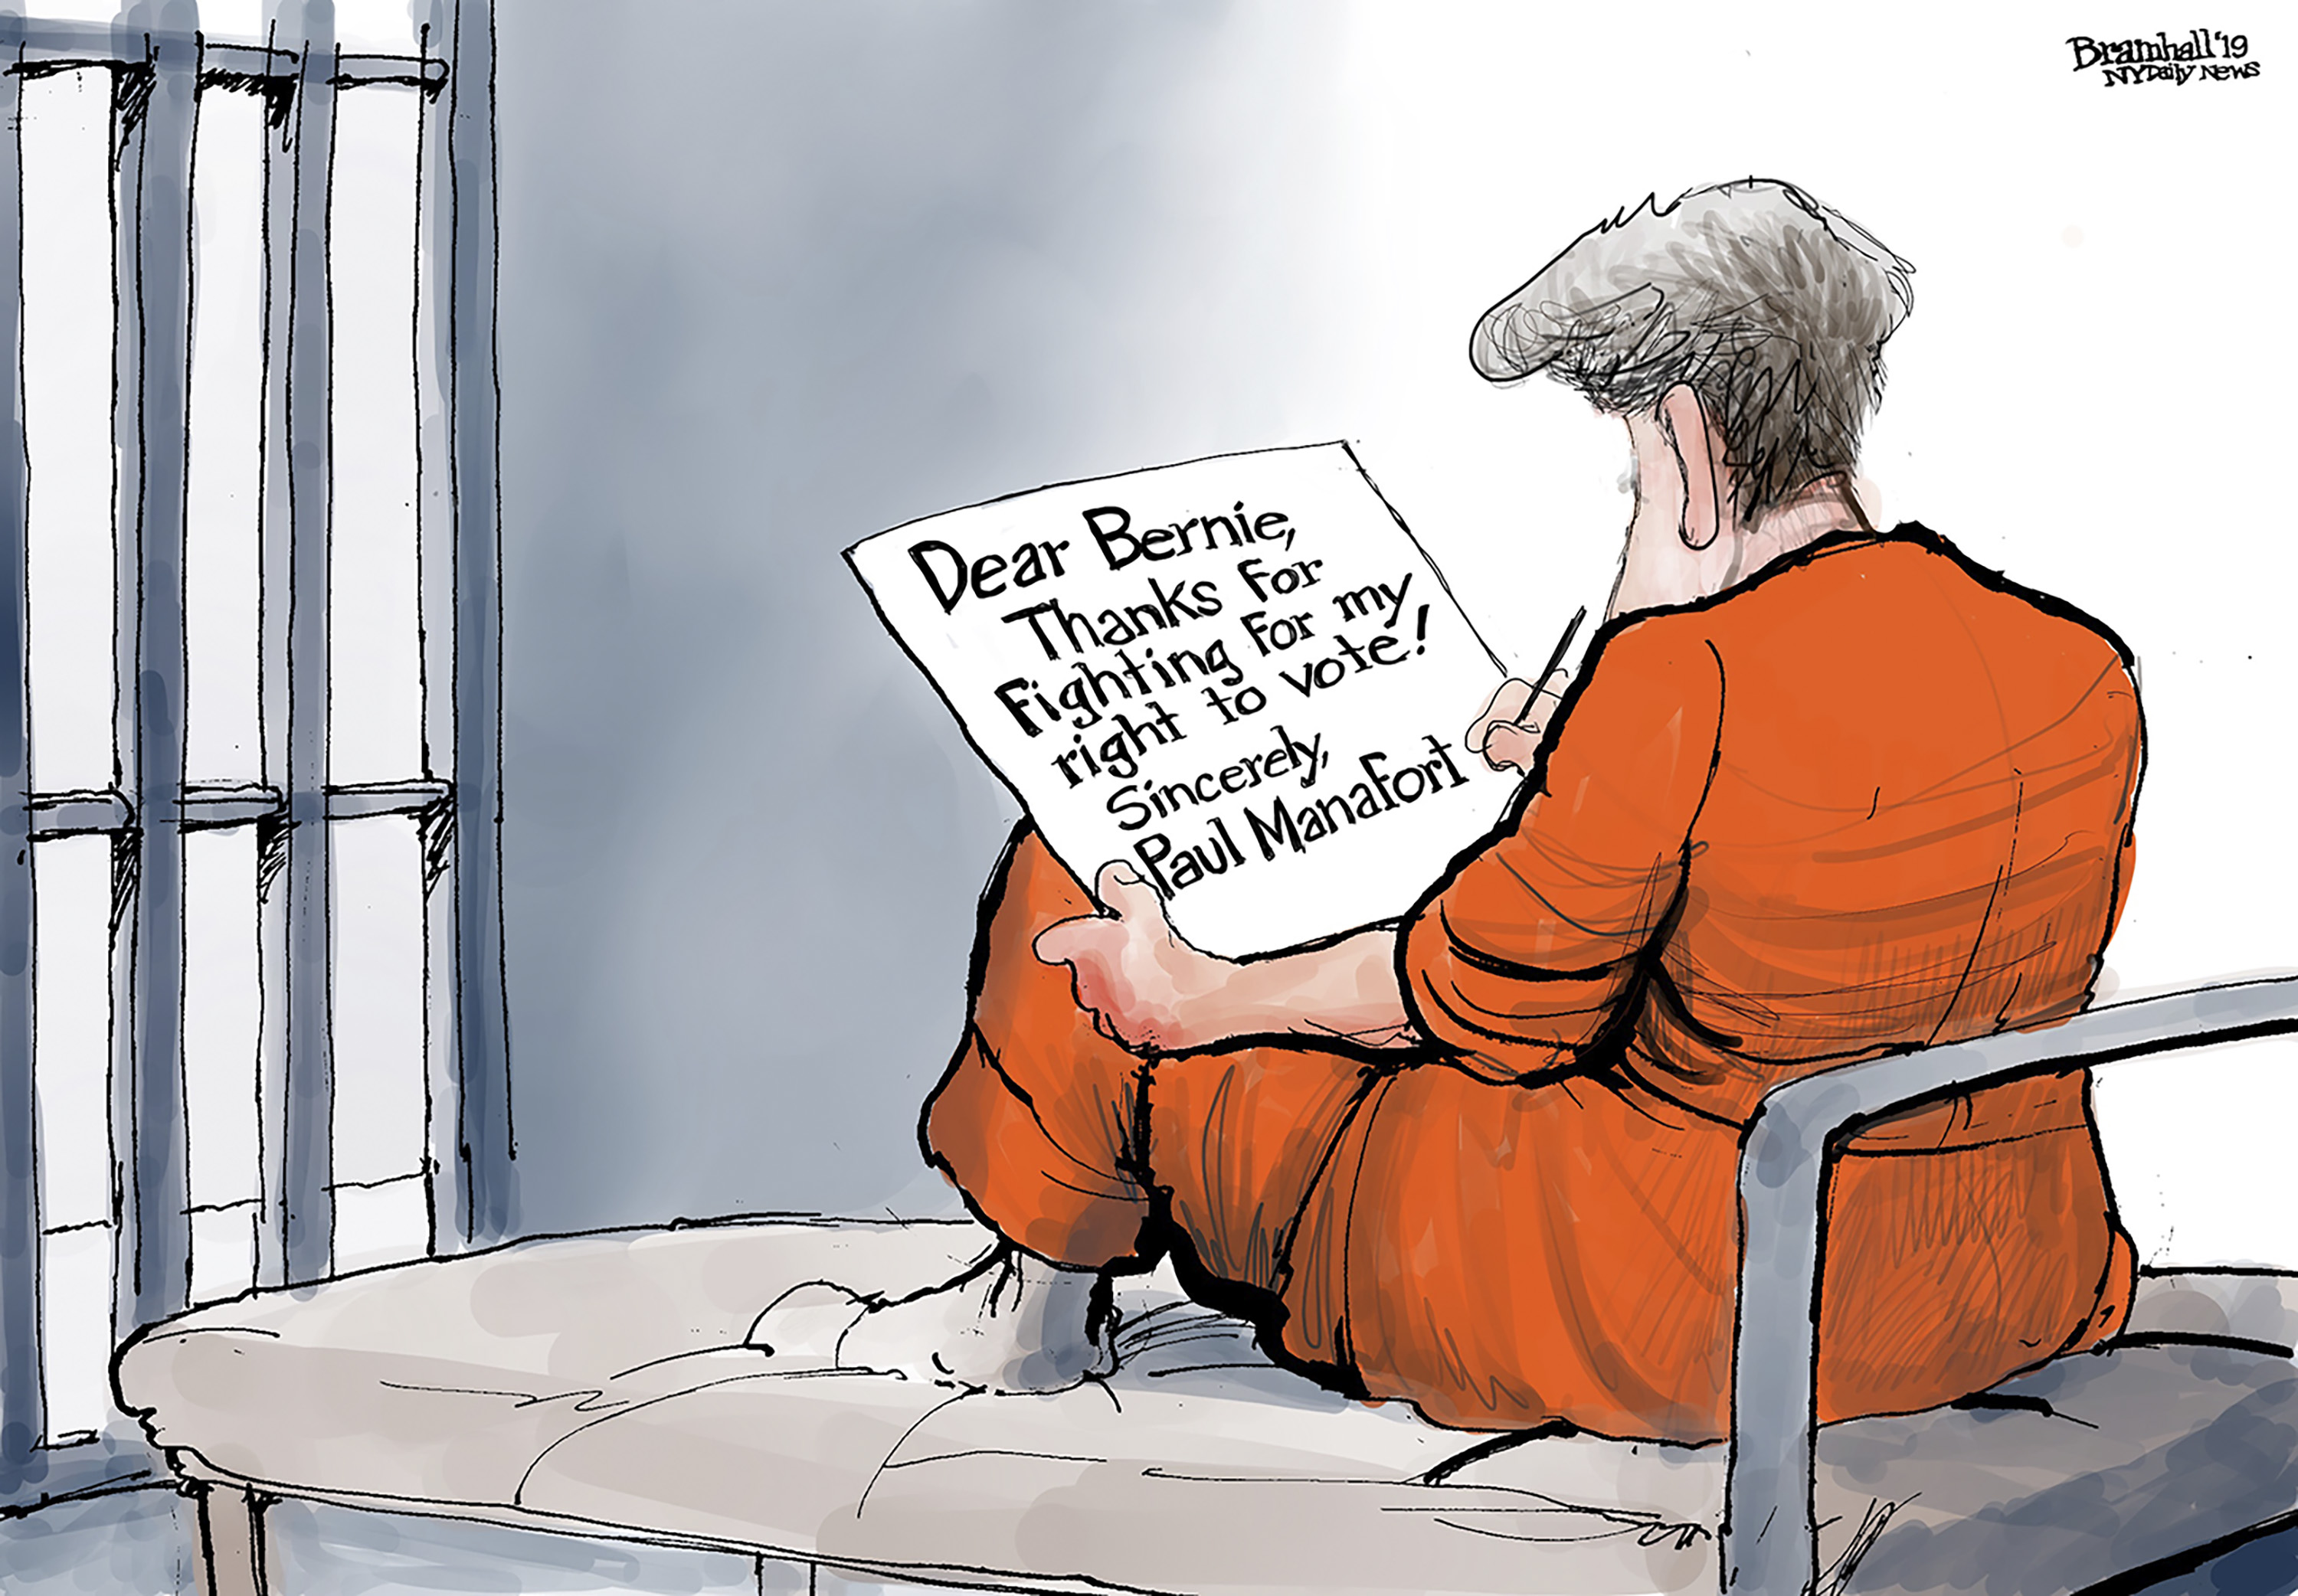 Bramhall '19
NY Daily News
Dear Bernie,
Thanks for
Fighting For my
right to vote!
Sincerely,
Paul Manafort